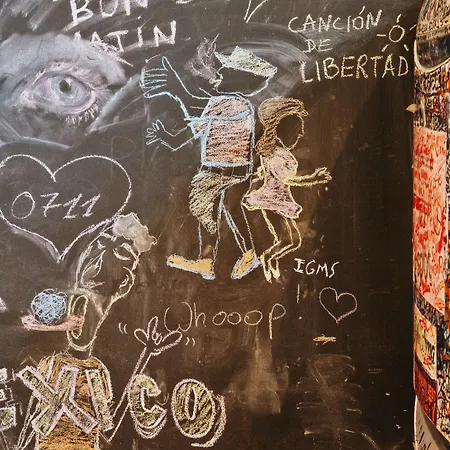 BUN
JATÍN
CANCIÓN
DE
LIBERTAD
0711
IGMS
Whooop!
EXICO